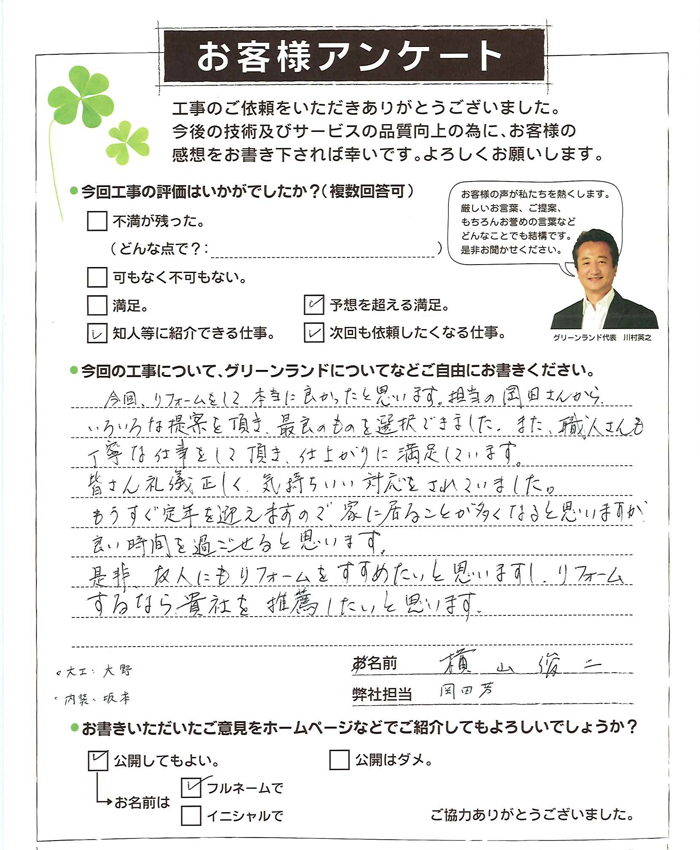 お客様アンケート
工事のご依頼をいただきありがとうございました。
今後の技術及びサービスの品質向上の為に、お客様の
感想をお書き下されば幸いです。よろしくお願いします。
今回工事の評価はいかがでしたか？（複数回答可）
不満が残った。
（どんな点で？：　）
可もなく不可もない。
満足。
予想を超える満足。
知人等に紹介できる仕事。
次回も依頼したくなる仕事。
お客様の声が私たちを熱くします。
厳しいお言葉、ご提案、
もちろんお誉めの言葉など
どんなことでも結構です。
是非お聞かせください。
グリーンランド代表　川村英之
今回の工事について、グリーンランドについてなどご自由にお書きください。
今回、リフォームをして本当に良かったと思います。担当の岡田さんから
いろいろな提案を頂き、最良のものを選択できました。また、職人さんも
丁寧な仕事をして頂き、仕上がりに満足しています。
皆さん礼儀正しく、気持ちいい対応をされていました。
もうすぐ定年を迎えますので家に居ることが多くなると思いますが、
良い時間を過ごせると思います。
是非、友人にもリフォームをすすめたいと思いますし、リフォーム
するなら、貴社を推薦したいと思います。
大工：大野
内装：坂本
お名前　横山俊二
弊社担当　岡田芳
お書きいただいたご意見をホームページなどでご紹介してもよろしいでしょうか？
公開してもよい。
公開はダメ。
お名前は
フルネームで
イニシャルで
ご協力ありがとうございました。